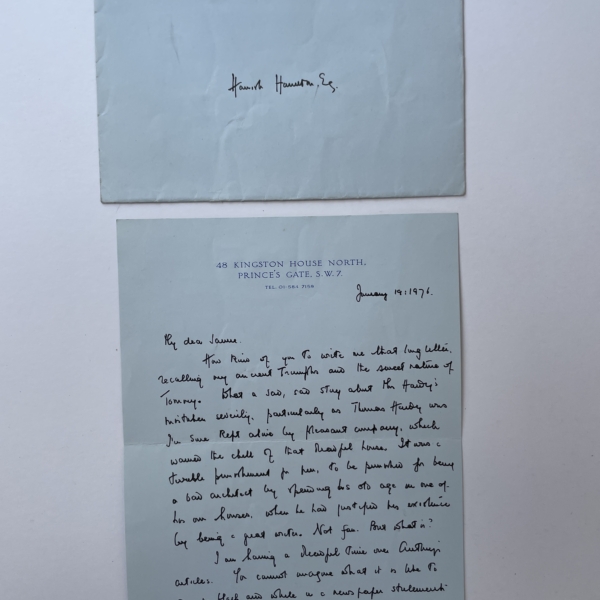 Hamish Hamilton, Esq.
48 KINGSTON HOUSE NORTH,
PRINCE'S GATE, S.W.7.
TEL. 01-584
January 19: 1976.
My dear Jamie.
How kind of you to write me that long letter,
recalling my ancient triumphs and the sweet nature of
Tommy. What a sad, sad story about Mrs Hardy's
mistaken severity, particularly as Thomas Hardy was
I'm sure kept alive by pleasant company, which
warmed the chill of that dreadful house. It was a
terrible punishment for him, to be punished for being
a bad architect by spending his old age in one of
his own houses, when he had justified his existence
by being a great writer. Not fair. But what is?
I am having a dreadful time over Anthony's
articles. You cannot imagine what it is like to
black and white in a newspaper statements